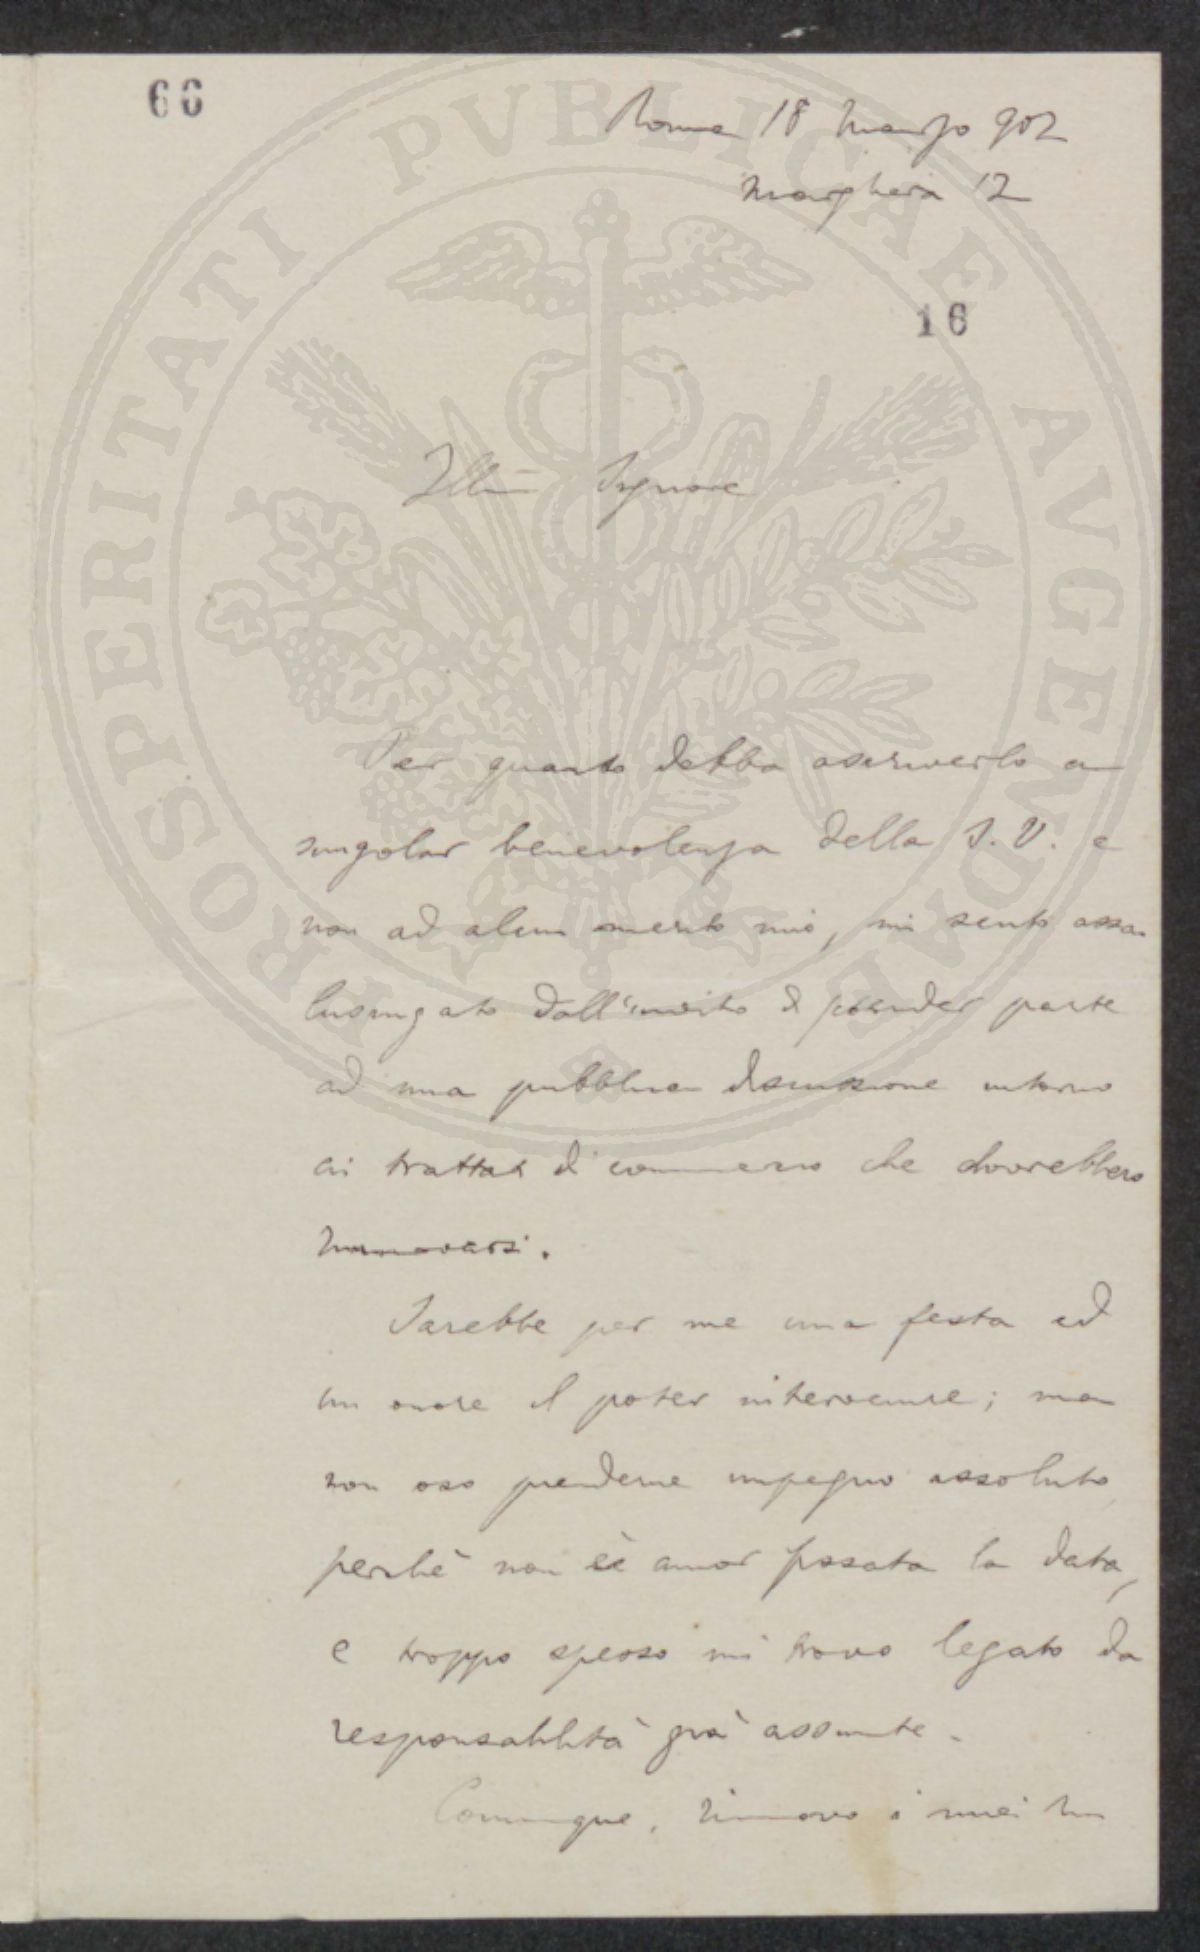 66
Roma 18 Marzo 902
Marghera 12
16
Ill. Signore
Per quanto debba ascriverlo a
singolar benevolenza della S. V. e
non ad alcun merito mio, mi sento assai
lusingato dall'invito di prender parte
ad una pubblica discussione intorno
ai trattati di commercio che dovrebbero
rinnovarsi.
Sarebbe per me una festa ed
un onore il poter intervenire; ma
non oso prenderne impegno assoluto
perchè non è ancor fissata la data,
e troppo spesso mi trovo legato da
responsabilità già assunte.
Comunque, rinnovo i miei rin
PROSPERITATI PVBLICAE AVGENDAE